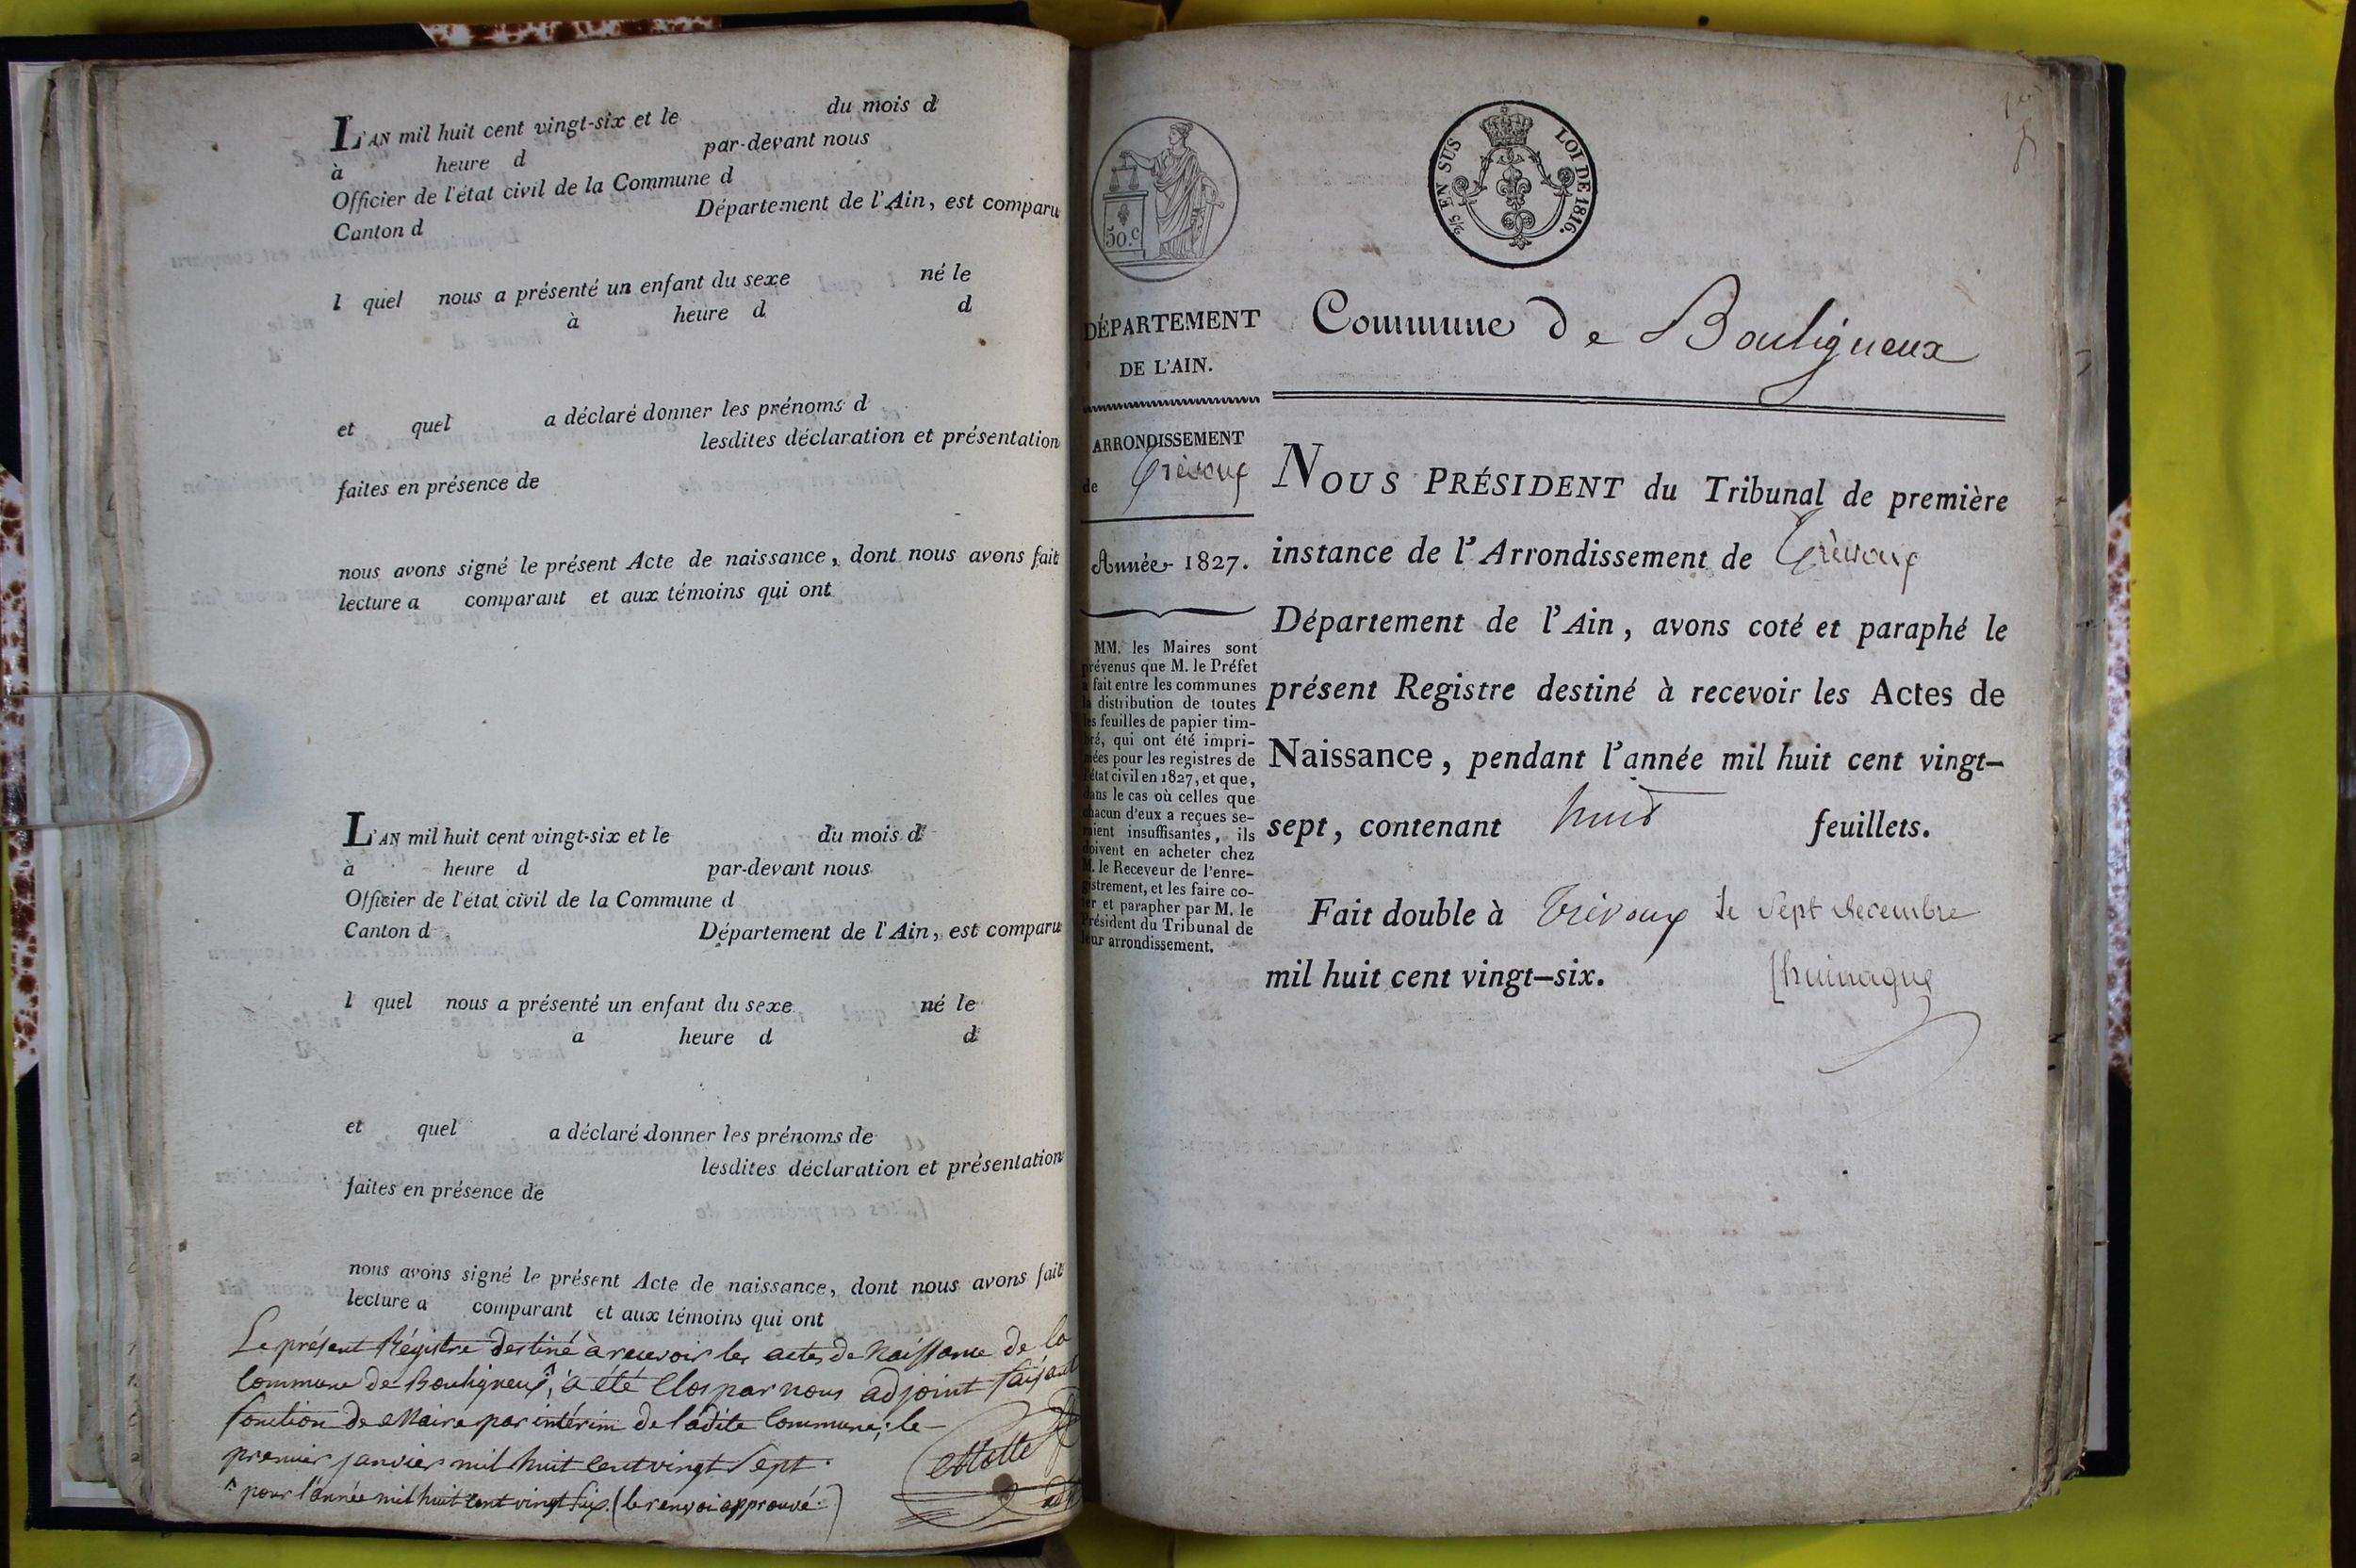 L'AN mil huit cent vingt-six et le du mois d
à heure d par-devant nous
Officier de l'état civil de la Commune d
Canton d Département de l'Ain, est comparu
l quel nous a présenté un enfant du sexe né le
à heure d d
et quel a déclaré donner les prénoms d
lesdites déclaration et présentation
faites en présence de
nous avons signé le présent Acte de naissance, dont nous avons fait
lecture a comparant et aux témoins qui ont
L'AN mil huit cent vingt-six et le du mois d
à heure d par-devant nous
Officier de l'état civil de la Commune d
Canton d Département de l'Ain, est comparu
l quel nous a présenté un enfant du sexe né le
a heure d d
et quel a déclaré donner les prénoms de
lesdites déclaration et présentation
faites en présence de
nous avons signé le présent Acte de naissance, dont nous avons fait
lecture a comparant et aux témoins qui ont
Le présent Régistre destiné à recevoir les actes de Naissance de la
Commune de Bouligneux, a été Clos par nous adjoint faisant
fonction de Maire par intérim de ladite Commune, le
premier janvier mil huit cent vingt Sept.
pour l'année mil huit cent vingt six. (le renvoi approuvé.)
50.c
2/5 EN SUS LOI DE 1816.
DÉPARTEMENT
DE L'AIN.
ARRONDISSEMENT
de Trévoux
Année 1827.
MM. les Maires sont
prévenus que M. le Préfet
a fait entre les communes
la distribution de toutes
les feuilles de papier tim-
bré, qui ont été impri-
mées pour les registres de
l'état civil en 1827, et que,
dans le cas où celles que
chacun d'eux a reçues se-
raient insuffisantes, ils
doivent en acheter chez
M. le Receveur de l'enre-
gistrement, et les faire co-
ter et parapher par M. le
Président du Tribunal de
leur arrondissement.
Commune de Bouligneux
NOUS PRÉSIDENT du Tribunal de première
instance de l'Arrondissement de Trévoux
Département de l'Ain, avons coté et paraphé le
présent Registre destiné à recevoir les Actes de
Naissance, pendant l'année mil huit cent vingt-
sept, contenant huit feuillets.
Fait double à Trévoux le Sept decembre
mil huit cent vingt-six.